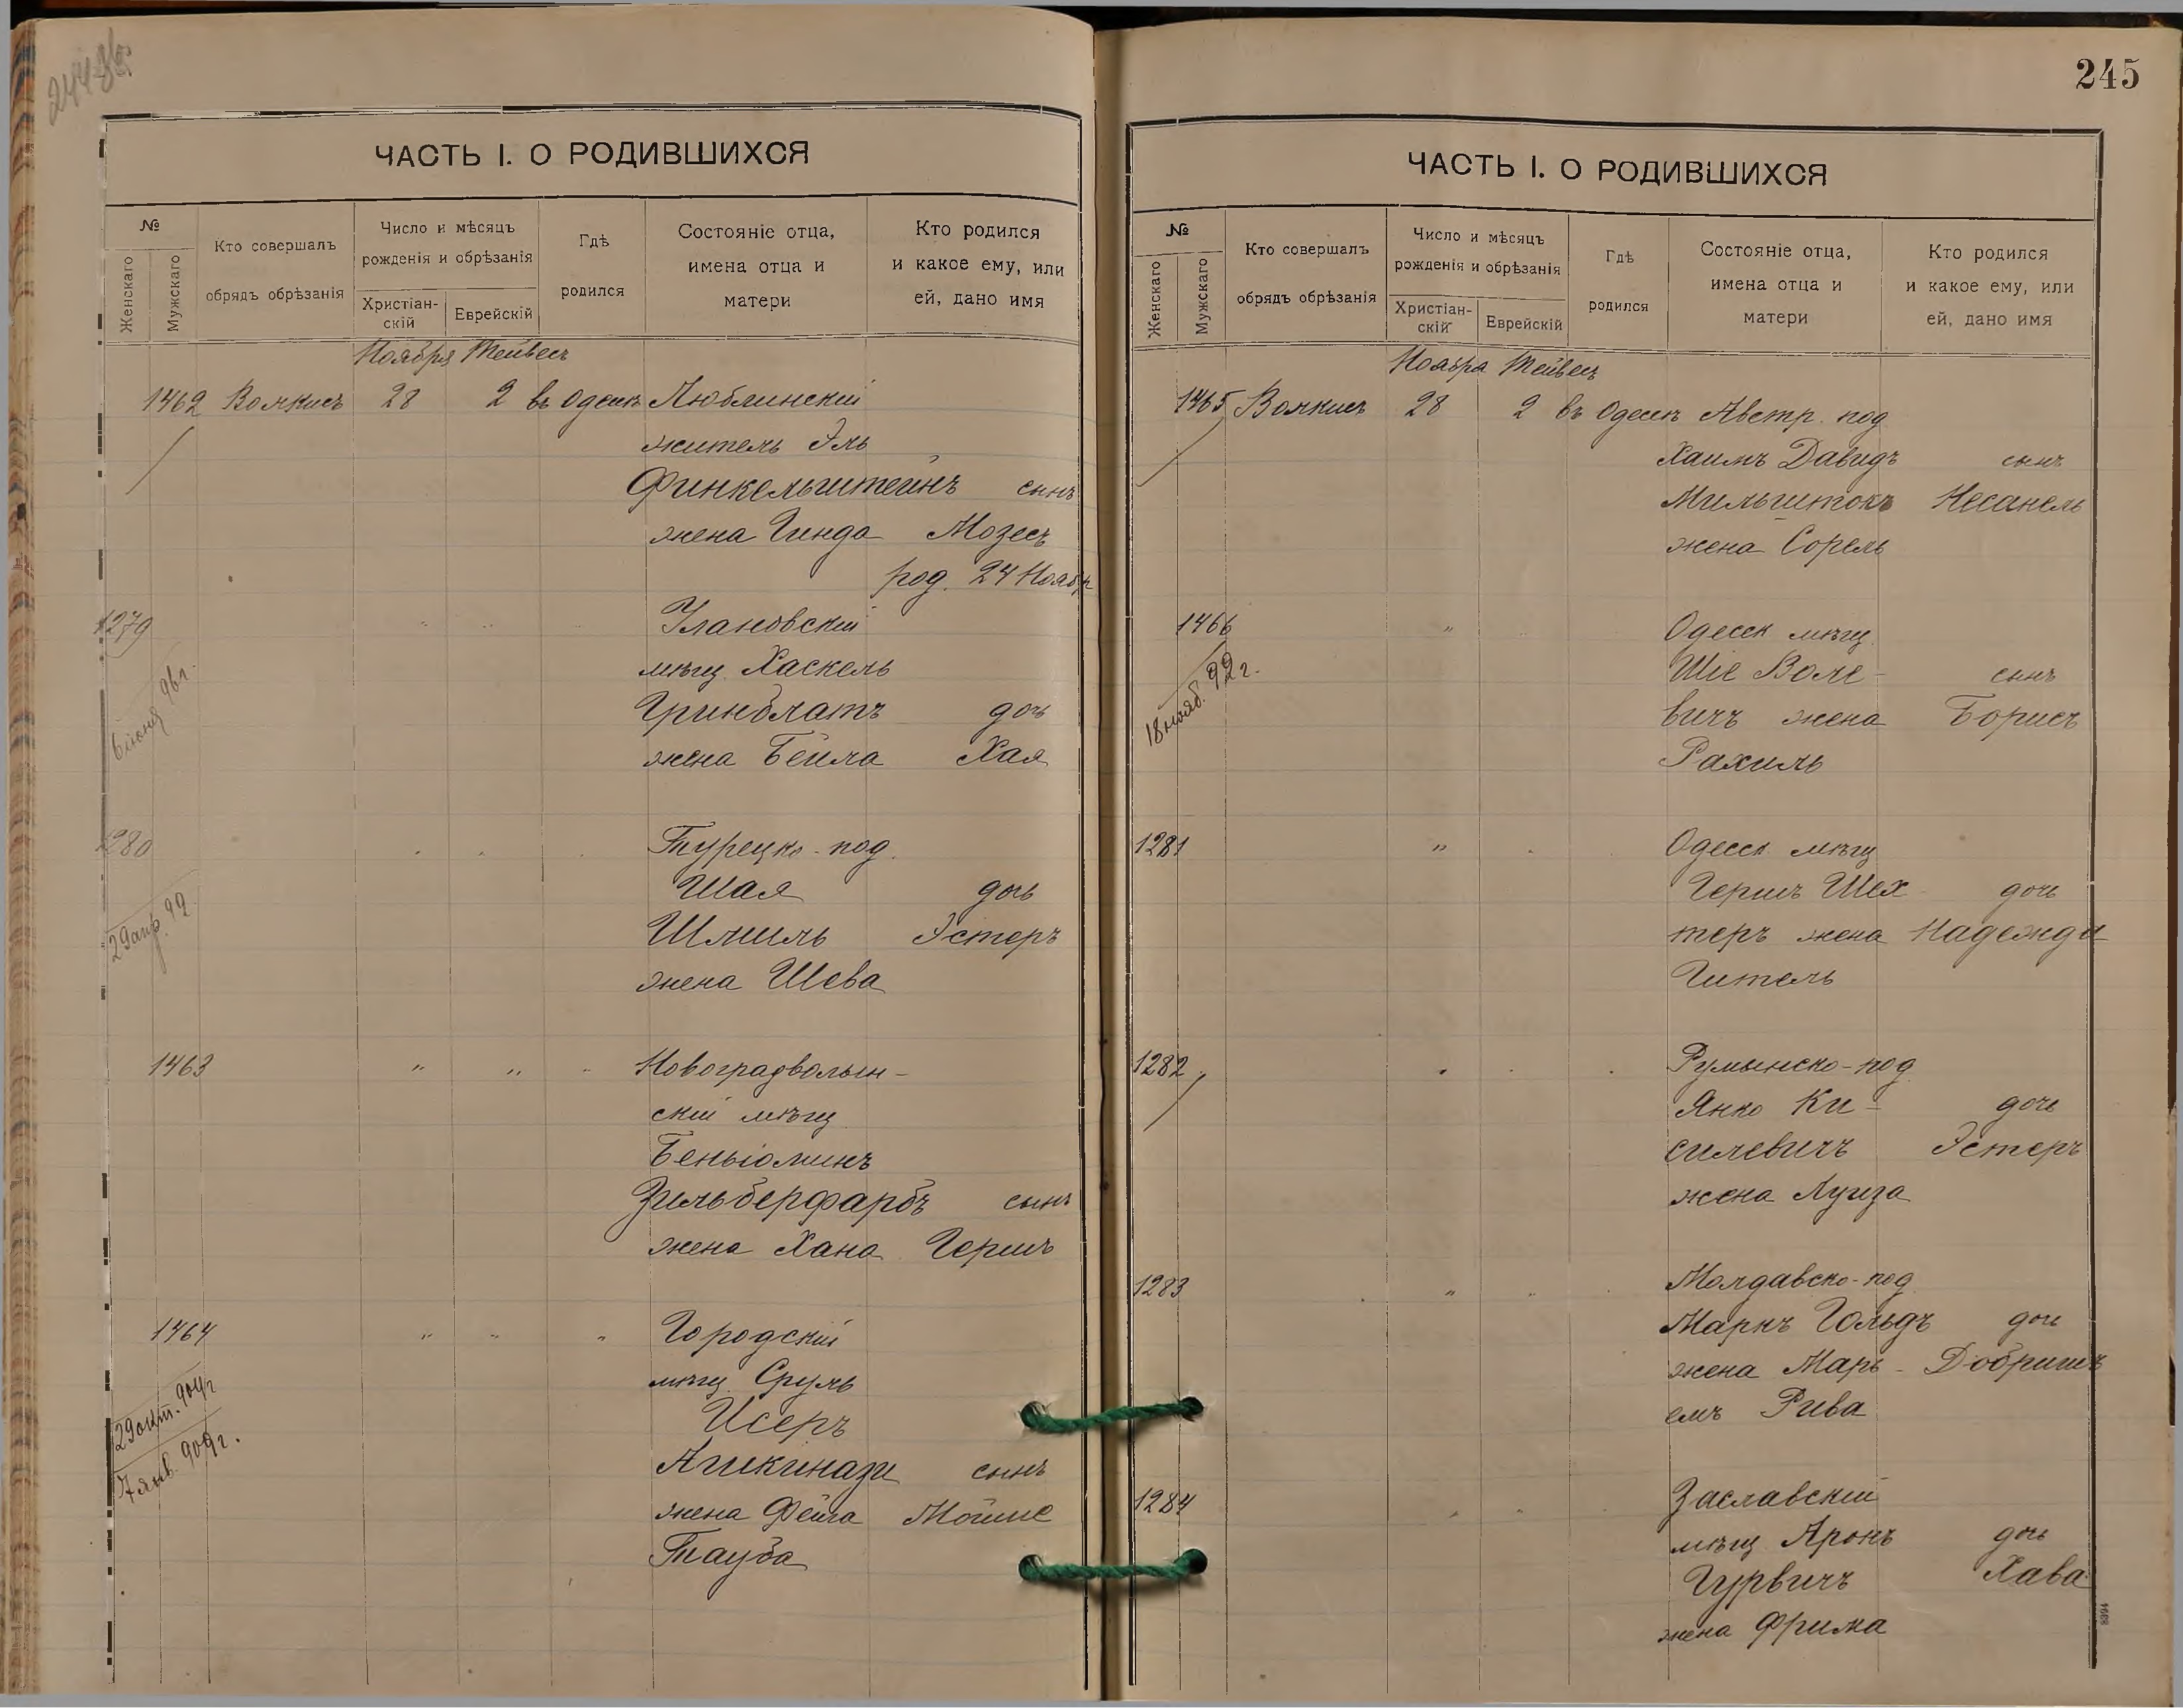 ЧАСТЬ I. О РОДИВШИХСЯ
№
Женскаго
Мужскаго
Кто совершалъ
обрядъ обрѣзанія
Число и мѣсяцъ
рожденія и обрѣзанія
Христіан-
скій
Еврейскій
Гдѣ
родился
Состояніе отца,
имена отца и
матери
Кто родился
и какое ему, или
ей, дано имя
Ноября Тейвесъ
1462 Волкисъ 28 2 въ Одессѣ Люблинскій
житель Эль
Финкельштейнъ сынъ
жена Гинда Мозесъ
род. 24 Ноябр
1279 Улановскій
6 іюня 96 г.
мѣщ. Хаскель
Гринблатъ дочь
жена Бейла Хая
1280 Турецко-под.
29 апр. 99
Шая дочь
Шлиль Эстеръ
жена Шева
1463 " " " Новоградволын-
скій мѣщ
Беньюминъ
Зильберфарбъ сынъ
жена Хана Гершъ
1464 " " " Городскій
29 окт. 904 г
7 янв. 909 г.
мѣщ. Сруль
Исеръ
Ашкинази сынъ
жена Фейга Мойше
Тауба
245
ЧАСТЬ I. О РОДИВШИХСЯ
№
Женскаго
Мужскаго
Кто совершалъ
обрядъ обрѣзанія
Число и мѣсяцъ
рожденія и обрѣзанія
Христіан-
скій
Еврейскій
Гдѣ
родился
Состояніе отца,
имена отца и
матери
Кто родился
и какое ему, или
ей, дано имя
Ноября Тейвесъ
1465 Волкисъ 28 2 въ Одессѣ Австр. под
Хаимъ Давидъ сынъ
Мильштокъ Несанель
жена Сорель
1466 " Одесск мѣщ.
18 нояб. 92 г.
Шіе Воле- сынъ
вичъ жена Борисъ
Рахиль
1281 " Одесск мѣщ
Гершъ Шех дочь
теръ жена Надежда
Гитель
1282 Румынско-под
Янко Ки- дочь
силевичъ Эстеръ
жена Луиза
1283 " Молдавско-под
Маркъ Гольдъ дочь
жена Марь- Добришъ
емъ Рива
1284 Заславскій
мѣщ Аронъ дочь
Гурвичъ Хава
жена Фрима
8394